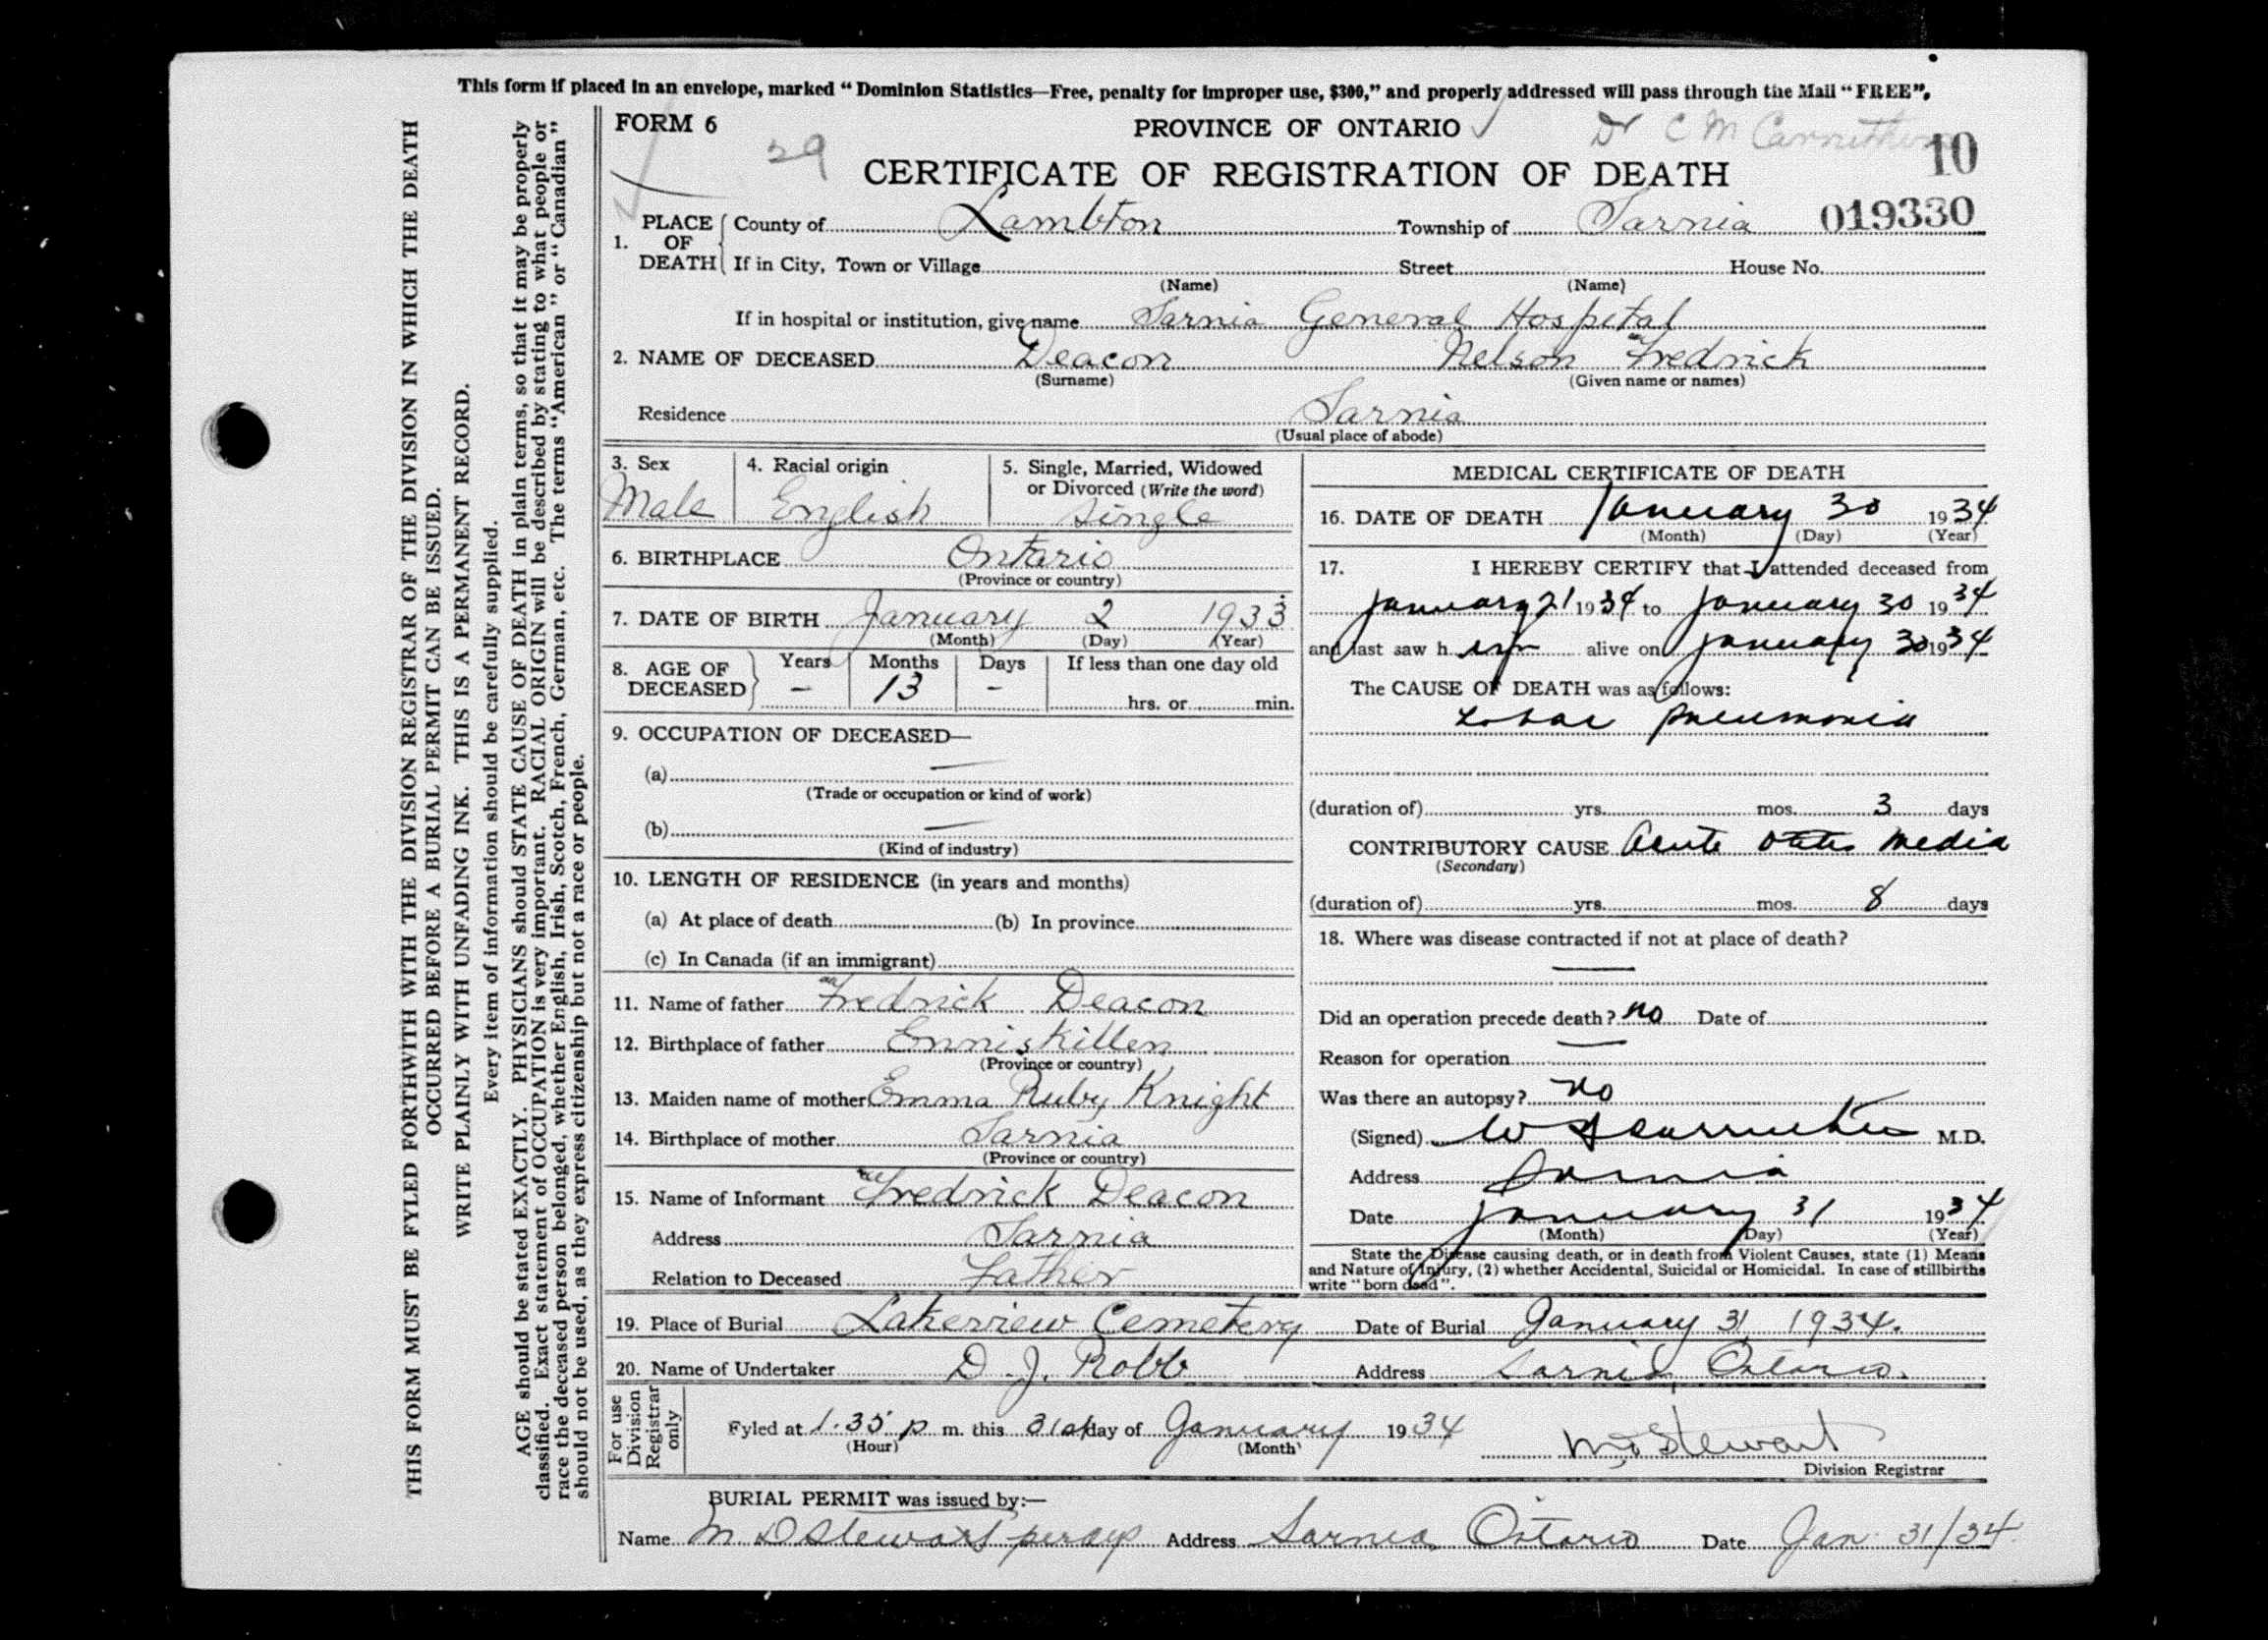 This form if placed in an envelope, marked “Dominion Statistics—Free, penalty for improper use, $300,” and properly addressed will pass through the Mail “FREE”,
FORM 6
PROVINCE OF ONTARIO
Dr C M Carruthers
29
10
CERTIFICATE OF REGISTRATION OF DEATH
019330
1. PLACE OF DEATH County of Lambton Township of Sarnia
If in City, Town or Village Street House No.
(Name) (Name)
If in hospital or institution, give name Sarnia General Hospital
2. NAME OF DECEASED Deacon Nelson Fredrick
(Surname) (Given name or names)
Residence Sarnia
(Usual place of abode)
3. Sex Male
4. Racial origin English
5. Single, Married, Widowed
or Divorced (Write the word)
Single
6. BIRTHPLACE Ontario
(Province or country)
7. DATE OF BIRTH January 2 1933
(Month) (Day) (Year)
8. AGE OF DECEASED Years Months Days If less than one day old
— 13 - hrs. or min.
9. OCCUPATION OF DECEASED—
(a) —
(Trade or occupation or kind of work)
(b) —
(Kind of industry)
10. LENGTH OF RESIDENCE (in years and months)
(a) At place of death (b) In province
(c) In Canada (if an immigrant)
11. Name of father Fredrick Deacon
12. Birthplace of father Enniskillen
(Province or country)
13. Maiden name of mother Emma Ruby Knight
14. Birthplace of mother Sarnia
(Province or country)
15. Name of Informant Fredrick Deacon
Address Sarnia
Relation to Deceased Father
MEDICAL CERTIFICATE OF DEATH
16. DATE OF DEATH January 30 1934
(Month) (Day) (Year)
17. I HEREBY CERTIFY that I attended deceased from
January 21 1934 to January 30 1934
and last saw h im alive on January 30 1934
The CAUSE OF DEATH was as follows:
Lobar pneumonia
(duration of) yrs. mos. 3 days
CONTRIBUTORY CAUSE Acute otitis media
(Secondary)
(duration of) yrs. mos. 8 days
18. Where was disease contracted if not at place of death?
—
Did an operation precede death? no Date of
Reason for operation —
Was there an autopsy? no
(Signed) W Carruthers M.D.
Address Sarnia
Date January 31 1934
(Month) (Day) (Year)
State the Disease causing death, or in death from Violent Causes, state (1) Means
and Nature of Injury, (2) whether Accidental, Suicidal or Homicidal. In case of stillbirths
write “born dead”.
19. Place of Burial Lakeview Cemetery Date of Burial January 31 1934.
20. Name of Undertaker D. J. Robb Address Sarnia, Ontario.
For use Division Registrar only
Fyled at 1.35 p m. this 31st day of January 1934
(Hour) (Month)
M D Stewart
Division Registrar
BURIAL PERMIT was issued by:—
Name M. D Stewart per Address Sarnia, Ontario Date Jan 31/34
THIS FORM MUST BE FYLED FORTHWITH WITH THE DIVISION REGISTRAR OF THE DIVISION IN WHICH THE DEATH
OCCURRED BEFORE A BURIAL PERMIT CAN BE ISSUED.
WRITE PLAINLY WITH UNFADING INK. THIS IS A PERMANENT RECORD.
Every item of information should be carefully supplied.
AGE should be stated EXACTLY. PHYSICIANS should STATE CAUSE OF DEATH in plain terms, so that it may be properly
classified. Exact statement of OCCUPATION is very important. RACIAL ORIGIN will be described by stating to what people or
race the deceased person belonged, whether English, Irish, Scotch, French, German, etc. The terms “American” or “Canadian”
should not be used, as they express citizenship but not a race or people.